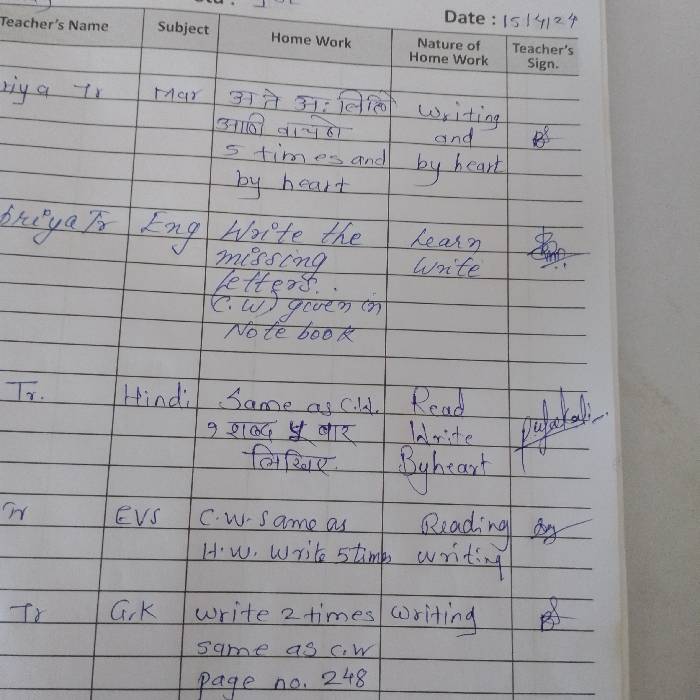 Date : 15/4/24
Teacher's Name Subject Home Work Nature of Home Work Teacher's Sign.
riya Tr Mar अ ते अः लिहि writing
आणि वाचणे and
5 times and by heart
by heart
priya Tr Eng Write the Learn
missing Write
letters..
(C.W) given in
Note book
Tr. Hindi Same as C.W. Read
9 शब्द ५ बार Write
लिखिए. Byheart
Tr EVS C.W. Same as Reading
H.W. Write 5 times writing
Tr G.K write 2 times writing
same as C.W
page no. 248